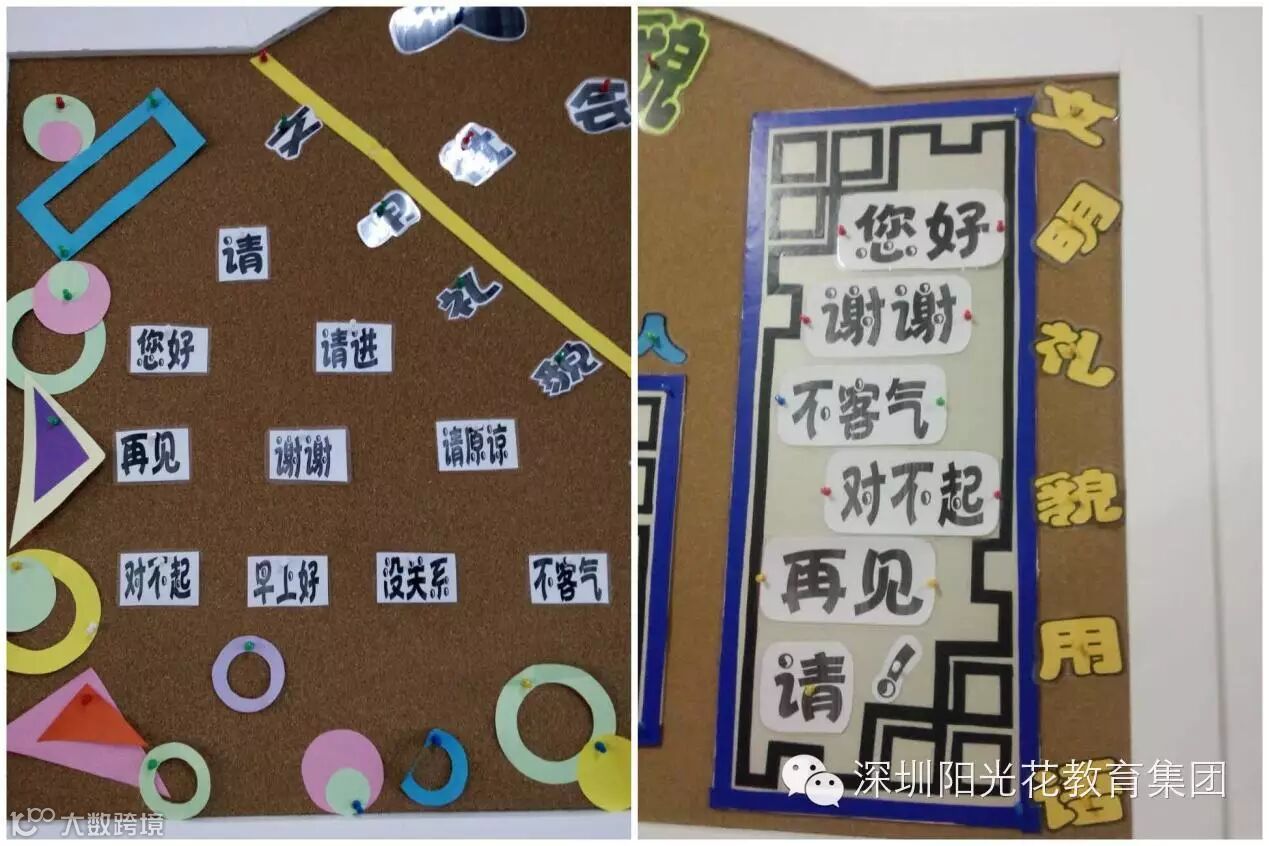 会
文
明
礼
貌
请
您好
请进
再见
谢谢
请原谅
对不起
早上好
没关系
不客气
大数跨境
貌
人
您好
谢谢
不客气
对不起
再见
请!
文明礼貌用语
深圳阳光花教育集团